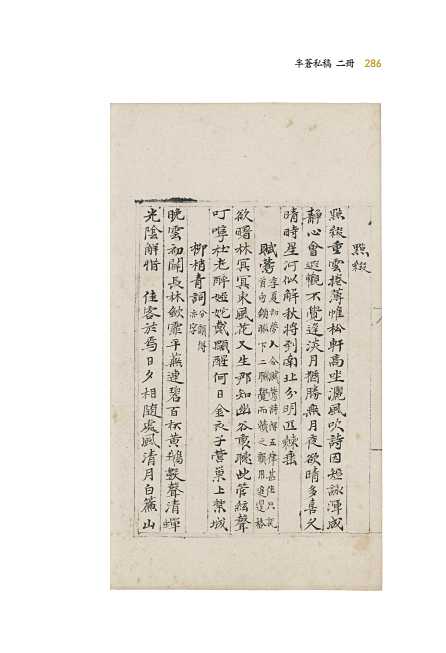 半蒼私稿 二冊 286
點綴
點綴重雲捲薄帷松軒高坐灑風吹詩因短詠渾成
靜心會遐觀不覺遲淡月猶勝無月夜欲晴多喜久
晴時星河似解秋將到南北分明匹練垂
賦鶯
欲曙林冥冥東風花又生那知幽谷裏聽此管絃聲
叮嚀杜老醉婭姹戴顒醒何日金衣子營巢上禁城
柳梢青詞 分韻得山字
晚雲初開長林歛霽平蕪連碧百杯黃鸝數聲清蟬
光陰解惜 佳客於焉日夕相隨處風清月白簾山